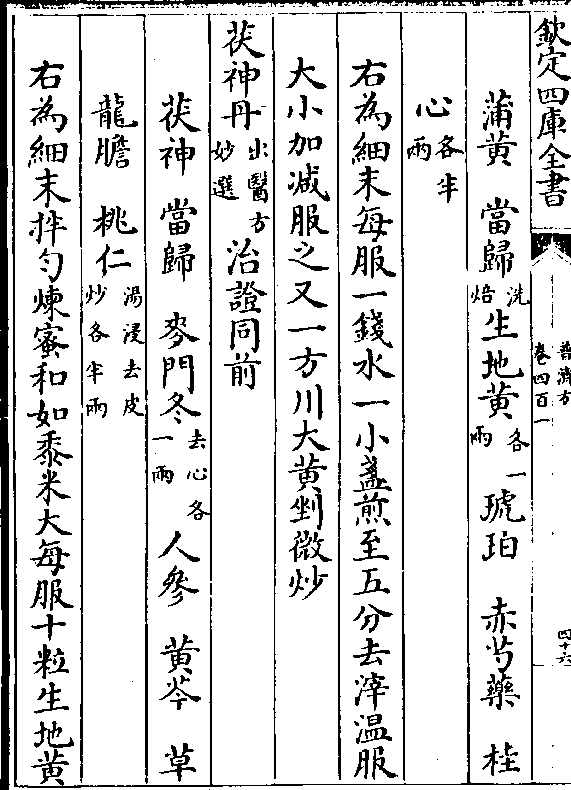 欽定四庫全書
普濟方
卷四百一
四十六
蒲黄 當歸洗焙生地黄各一兩 琥珀 赤芍藥 桂
心各半兩
右為細末每服一錢水一小盞煎至五分去滓温服
大小加減服之又一方川大黄剉微炒
茯神丹出醫方妙選治證同前
茯神 當歸 麥門冬去心各一兩 人參 黄芩 草
龍膽 桃仁湯浸去皮炒各半兩
右為細末拌勻煉蜜和如黍米大每服十粒生地黄